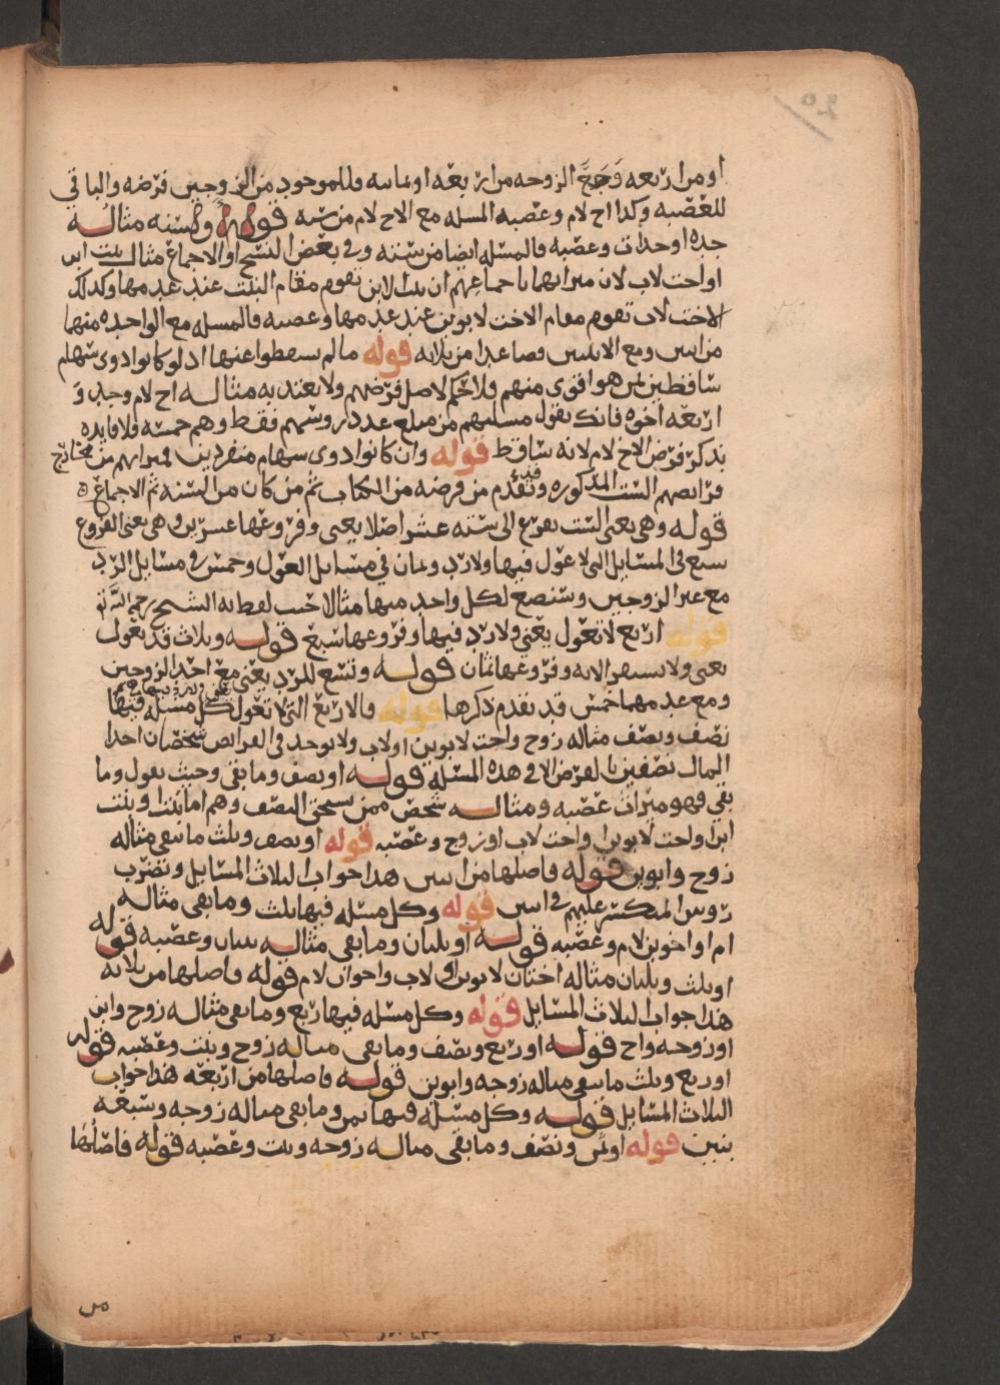 او من اربعه ومع الزوجه من اربعه او ثمانيه وللموجود من الزوجين فرضه والباقي
للعصبه وكذا اخ لام وعصبه المسله مع الاخ لام من سته قوله والسنه مثاله
جده او جدات وعصبه فالمسله ايضا من سته وفي بعض النسخ او الاجماع مثاله بنت ابن
او اخت لاب لان ميراثهما باجماعهم ان بنت الابن تقوم مقام البنت عند عدمها وكذلك
الاخت لاب تقوم مقام الاخت لابوين عند عدمها وعصبه فالمسله مع الواحده منهما
من اثنين ومع الاثنتين فصاعدا من ثلاثه قوله ما لم يسقطوا عنها اذ لو كانوا ذوي سهام
ساقطين لمن هو اقوى منهم فلا حكم لاصل فرضهم ولا يعتد به مثاله اخ لام وجد و
اربعه اخوه فانك تقول مسلتهم من مبلغ عدد روسهم فقط وهم خمسه فلا فايده
بذكر فرض الاخ لام لانه ساقط قوله وان كانوا ذوي سهام منفردين فميراثهم من مخارج
فرايضهم الست المذكوره وتقدم من فرضه من الكتاب ثم من كان من السنه ثم الاجماع
قوله وهي يعني الست تفرع الى سته عشر اصلا يعني وفروعها عشرين وهي يعني الفروع
سبع في المسايل التي لا عول فيها ولا رد وثمان في مسايل العول وخمس في مسايل الرد
مع غير الزوجين وستضع لكل واحد منها مثالا حسب لفظ الشيخ رحمه الله
قوله اربع لا تعول يعني ولا رد فيها وفروعها سبع قوله وثلاث قد تعول
يعني ولا وفروعها ثمان قوله وتسع للرد يعني مع احد الزوجين
ومع عدمهما خمس قد تقدم ذكرها قوله فالاربع التي لا تعول كل مسله فيها
نصف ونصف مثاله زوج واخت لابوين او لاب ولا يوجد في الفرايض شخصان اخذا
المال نصفين بالفرض الا في هذه المسله قوله او نصف وما بقي وحيث نقول وما
بقي فهو ميراث عصبه ومثاله شخص ممن يستحق النصف وهم اما بنت او بنت
ابن او اخت لابوين او اخت لاب او زوج وعصبه قوله او نصف وثلث ما يبقى مثاله
زوج وابوين قوله فاصلها من اثنين هذا جواب الثلاث المسايل وتضرب
روس المنكسر عليهم في اثنين قوله وكل مسله فيها ثلث وما بقي مثاله
ام او اخوين لام وعصبه قوله او ثلثان وما بقي مثاله بنتان وعصبه قوله
او ثلث وثلثان مثاله اختان لابوين او لاب واخوان لام قوله فاصلها من ثلاثه
هذا جواب الثلاث المسايل قوله وكل مسله فيها ربع وما بقي مثاله زوج وابن
او زوجه واخ قوله او ربع ونصف وما بقي مثاله زوج وبنت وعصبه قوله
او ربع وثلث ما يبقى مثاله زوجه وابوين قوله فاصلها من اربعه هذا جواب
الثلاث المسايل قوله وكل مسله فيها ثمن وما بقي مثاله زوجه وسبعه
بنين قوله او ثمن ونصف وما بقي مثاله زوجه وبنت وعصبه قوله فاصلها
من